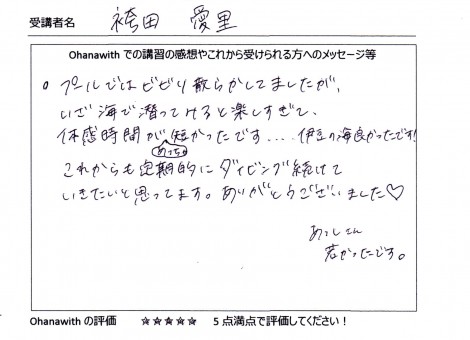 受講者名 袴田 愛里
Ohanawith での講習の感想やこれから受けられる方へのメッセージ等
。プールではビビり散らかしてましたが、
いざ海で潜ってみると楽しすぎて、
体感時間がめっちゃ短かったです....伊豆の海良かったです!
これからも定期的にダイビング続けて
いきたいと思ってます。ありがとうございました♡
あつしさん
若かったです。
Ohanawith の評価 ☆☆☆☆☆ 5 点満点で評価してください!